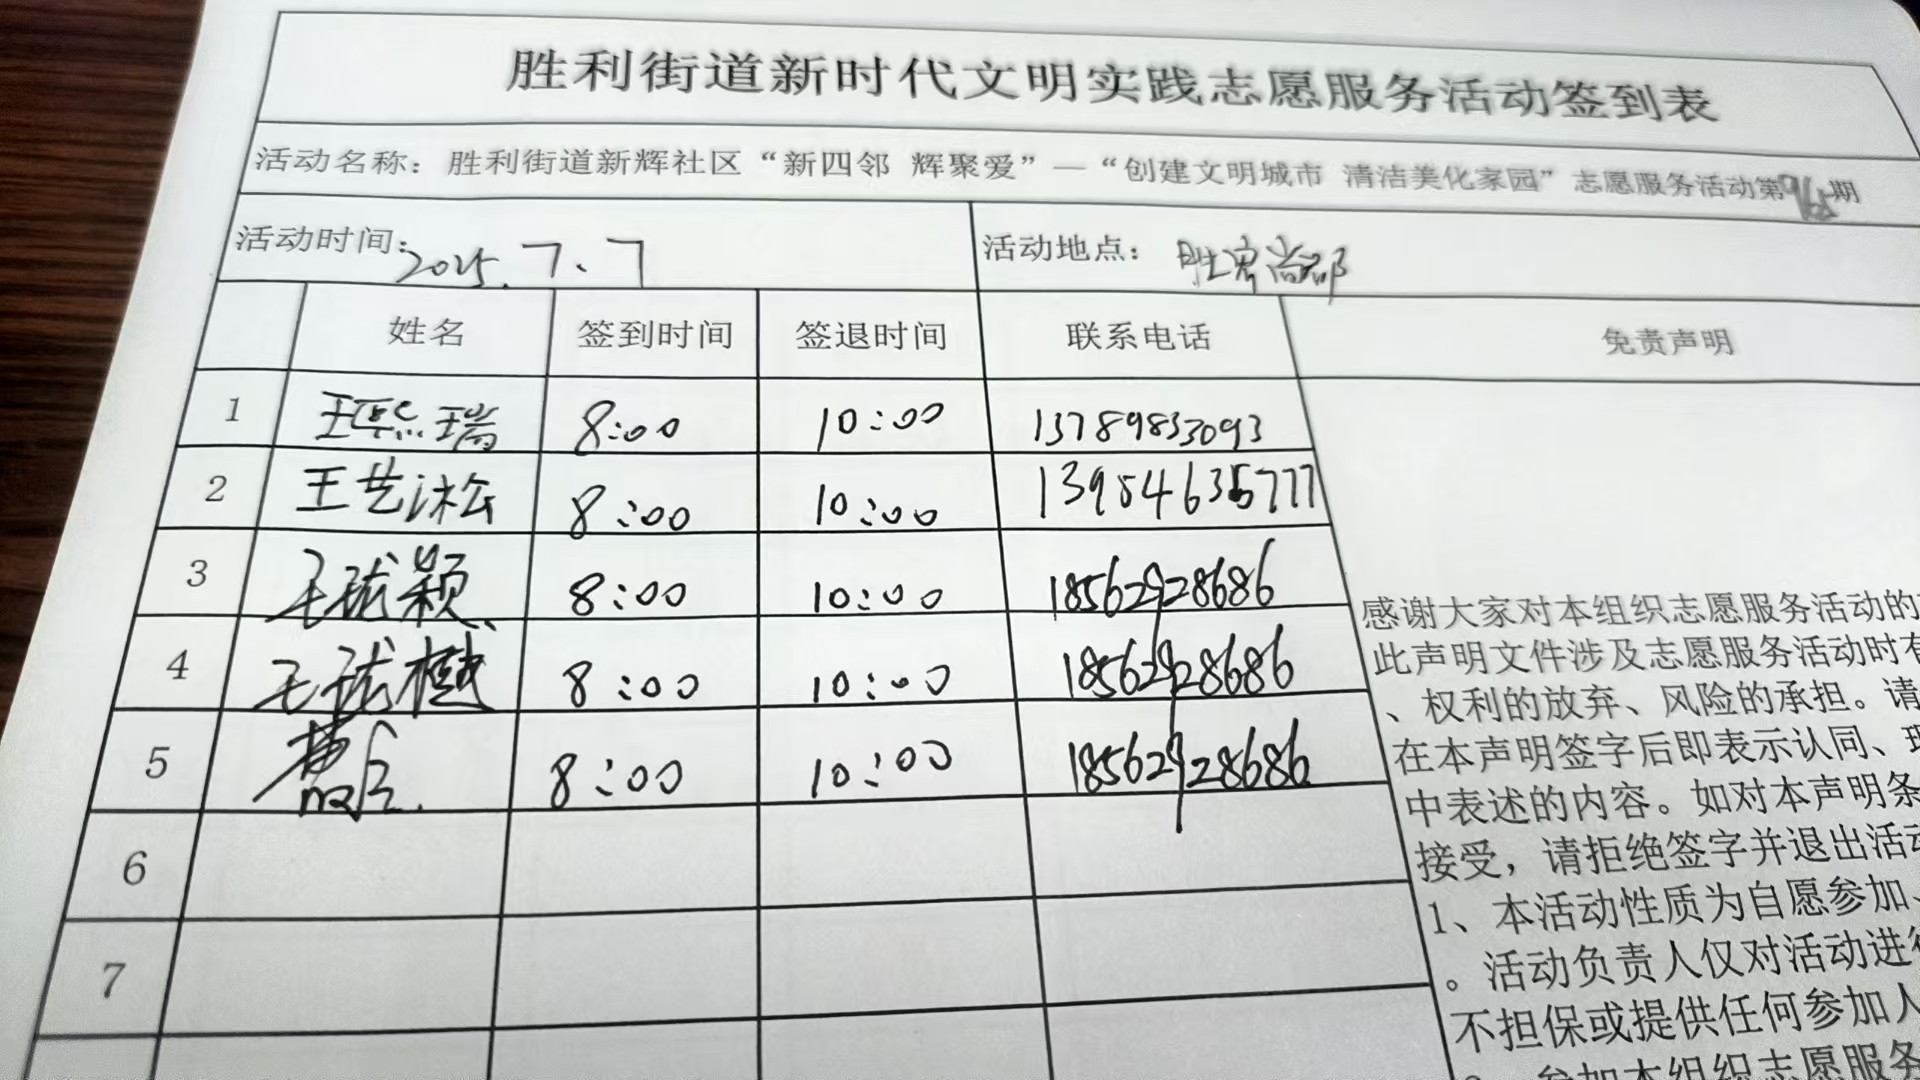 胜利街道新时代文明实践志愿服务活动签到表
活动名称：胜利街道新辉社区“新四邻 辉聚爱”—“创建文明城市 清洁美化家园”志愿服务活动第期
活动时间：2025.7.7 活动地点：胜宏尚都
姓名 签到时间 签退时间 联系电话 免责声明
1 王熙瑞 8:00 10:00 13789833093
2 王艺淞 8:00 10:00 13954635777
3 8:00 10:00 18562928686
4 8:00 10:00 18562928686
5 8:00 10:00 18562928686
6
7
感谢大家对本组织志愿服务活动的
此声明文件涉及志愿服务活动时有
、权利的放弃、风险的承担。请
在本声明签字后即表示认同、理
中表述的内容。如对本声明条
接受，请拒绝签字并退出活动
1、本活动性质为自愿参加、
。活动负责人仅对活动进行
不担保或提供任何参加人
参加本组织志愿服务